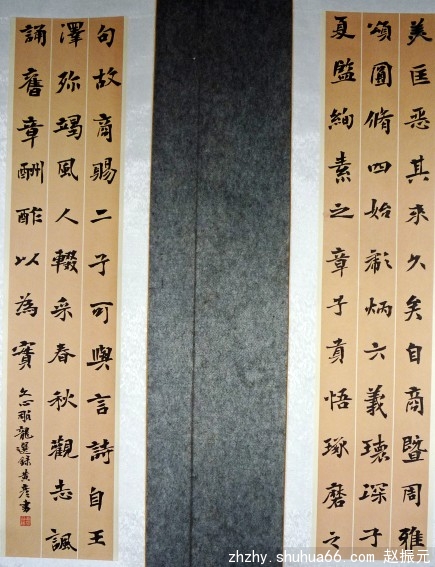 美匡恶其来久矣自商暨周雅
頌圓備四始彪炳六義瓌深子
夏監絢素之章子貢悟琢磨之
句故商賜二子可與言詩自王
澤弥竭風人輟采春秋觀志諷
誦舊章酬酢以為賓
文心雕龍選錄黄彦書
zhzhy.shuhua66.com 赵振元